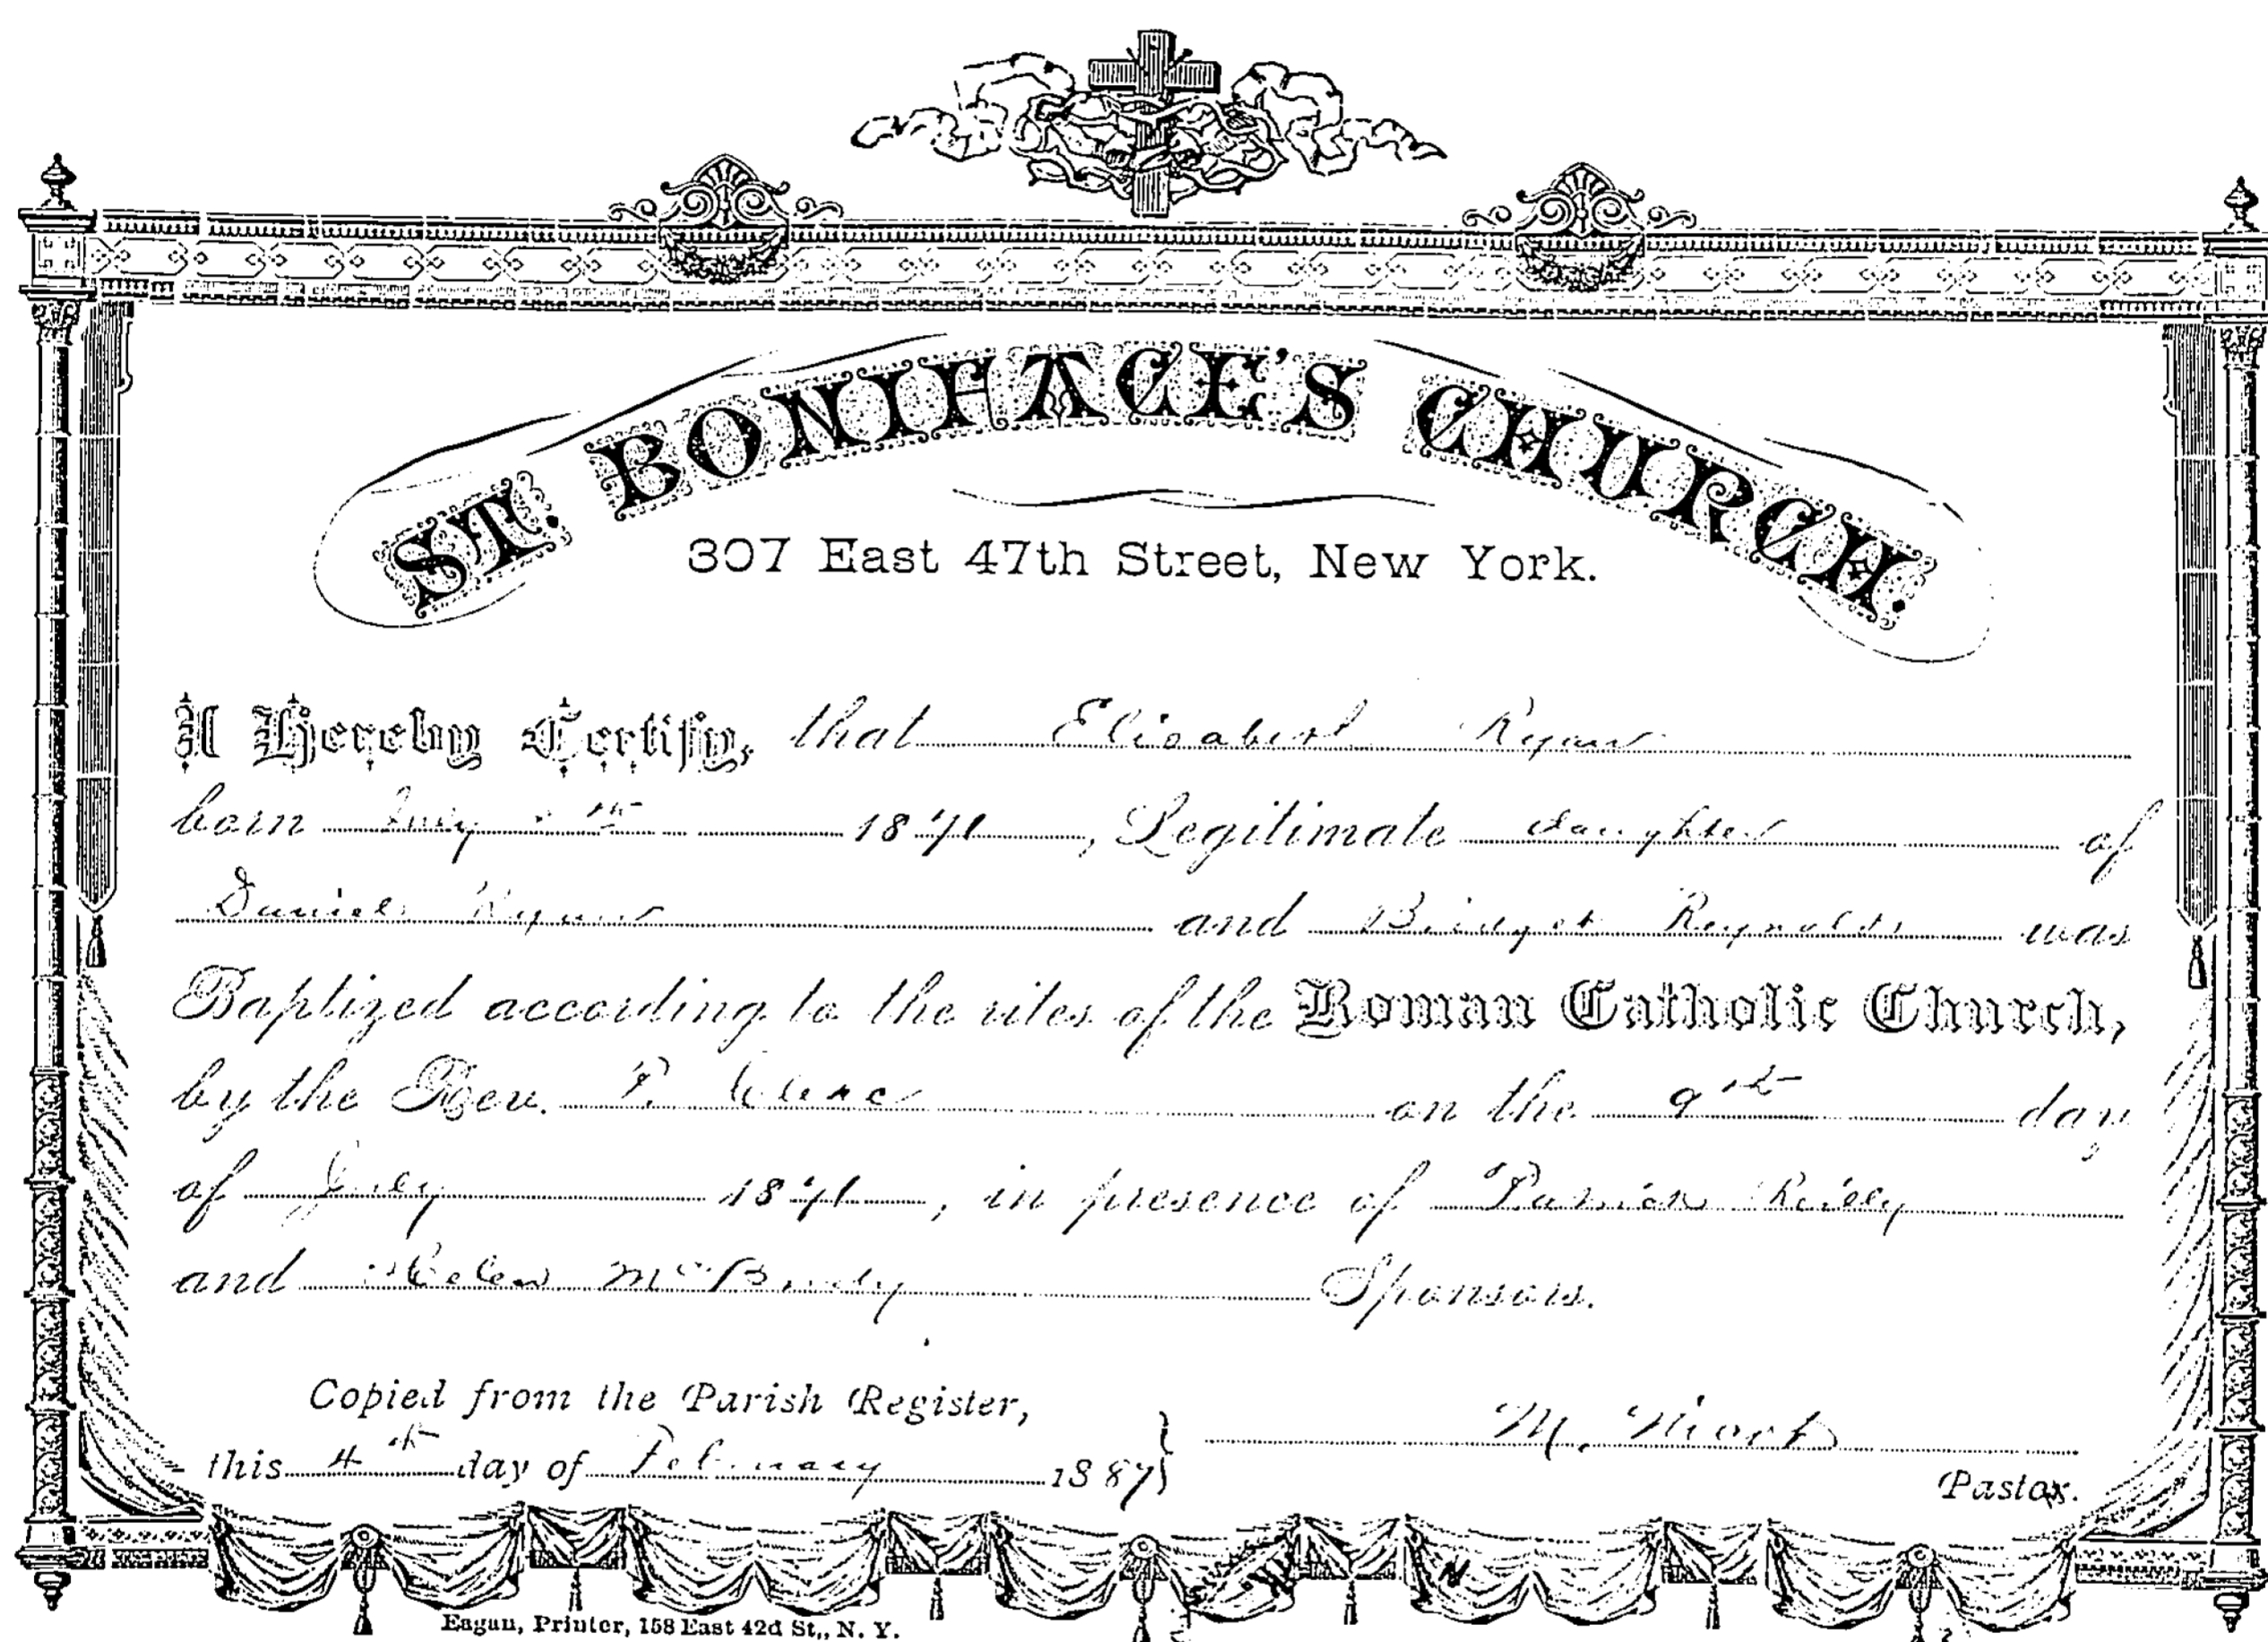 ST. BONIFACE'S CHURCH.
307 East 47th Street, New York.
I Hereby Certify, that Elisabeth Ryan
born July th 1871, Legitimate daughter of
Daniel Ryan and Bridget Reynolds was
Baptized according to the rites of the Roman Catholic Church,
by the Rev. P. on the 9th day
of July 1871, in presence of Reilly
and Helen Sponsors.
Copied from the Parish Register,
this 4th day of February 1887
M.
Pastor.
Eagan, Printer, 158 East 42d St., N. Y.